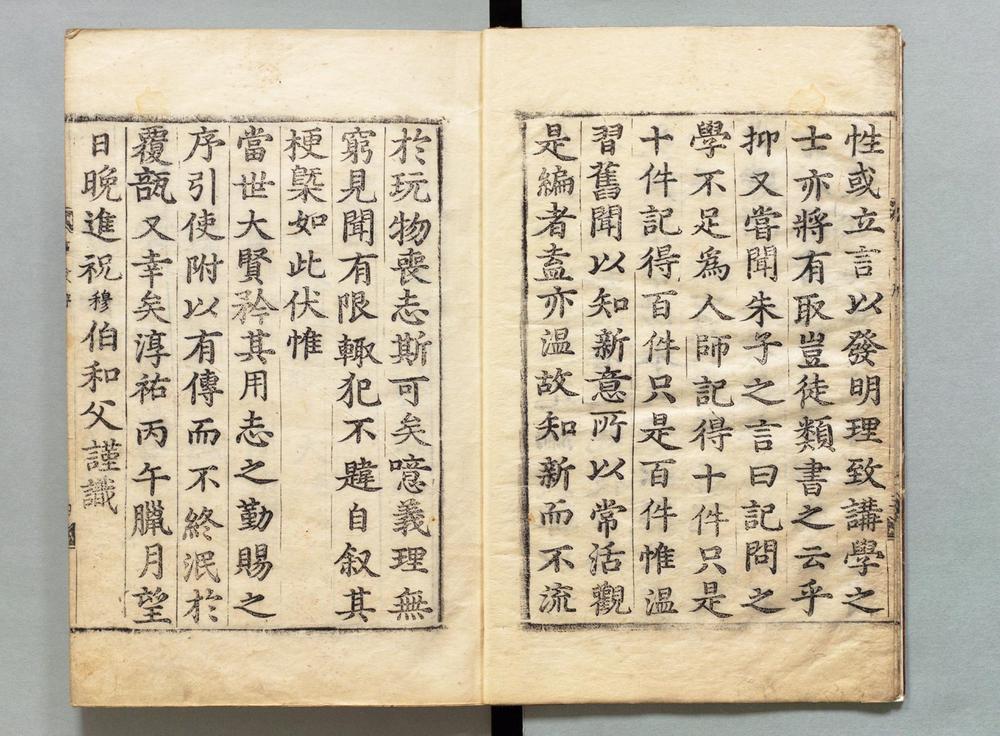 性或立言以發明理致講學之
士亦將有取豈徒類書之云乎
抑又嘗聞朱子之言曰記問之
學不足爲人師記得十件只是
十件記得百件只是百件惟溫
習舊聞以知新意所以常活觀
是編者盍亦温故知新而不流
於玩物喪志斯可矣噫義理無
窮見聞有限輙犯不韙自叙其
梗槩如此伏惟
當世大賢矜其用志之勤賜之
序引使附以有傳而不終泯於
覆瓿又幸矣淳祐丙午臘月望
日晚進祝穆伯和父謹識